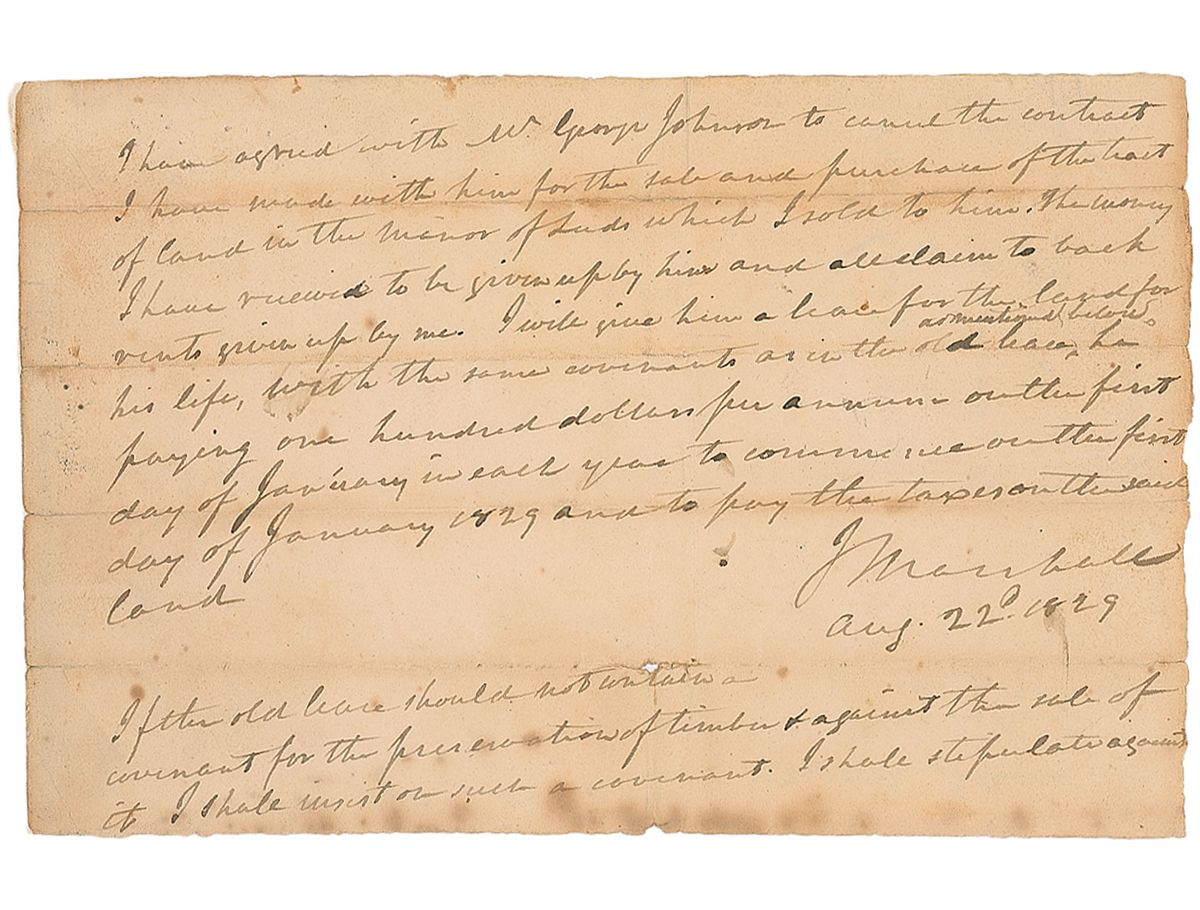 I have agreed with Mr. George Johnson to cancel the contract
I have made with him for the sale and purchase of the tract
of land in the Manor of Leeds which I sold to him. The money
I have received to be given up by him and all claim to back
rents given up by me. I will give him a lease for the land for
as mentioned below
his life, with the same covenants as in the old lease, he
paying one hundred dollars per annum on the first
day of January in each year to commence on the first
day of January 1829 and to pay the taxes on the said
land
J Marshall
Aug. 22d. 1829
If the old lease should not contain a
covenant for the preservation of timber & against the sale of
it I shall insist on such a covenant. I shall stipulate against